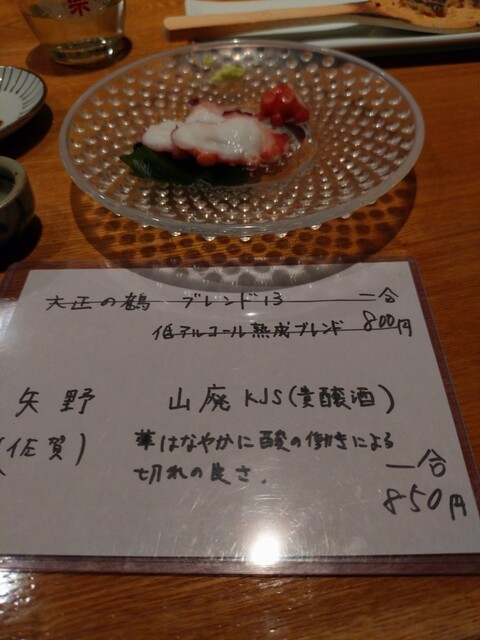 大正の鶴 ブレンド13 一合
低アルコール熟成ブレンド 800円
矢野 山廃KJS(貴醸酒)
(佐賀) 華はなやかに酸の働きによる
切れの良さ. 一合
850円